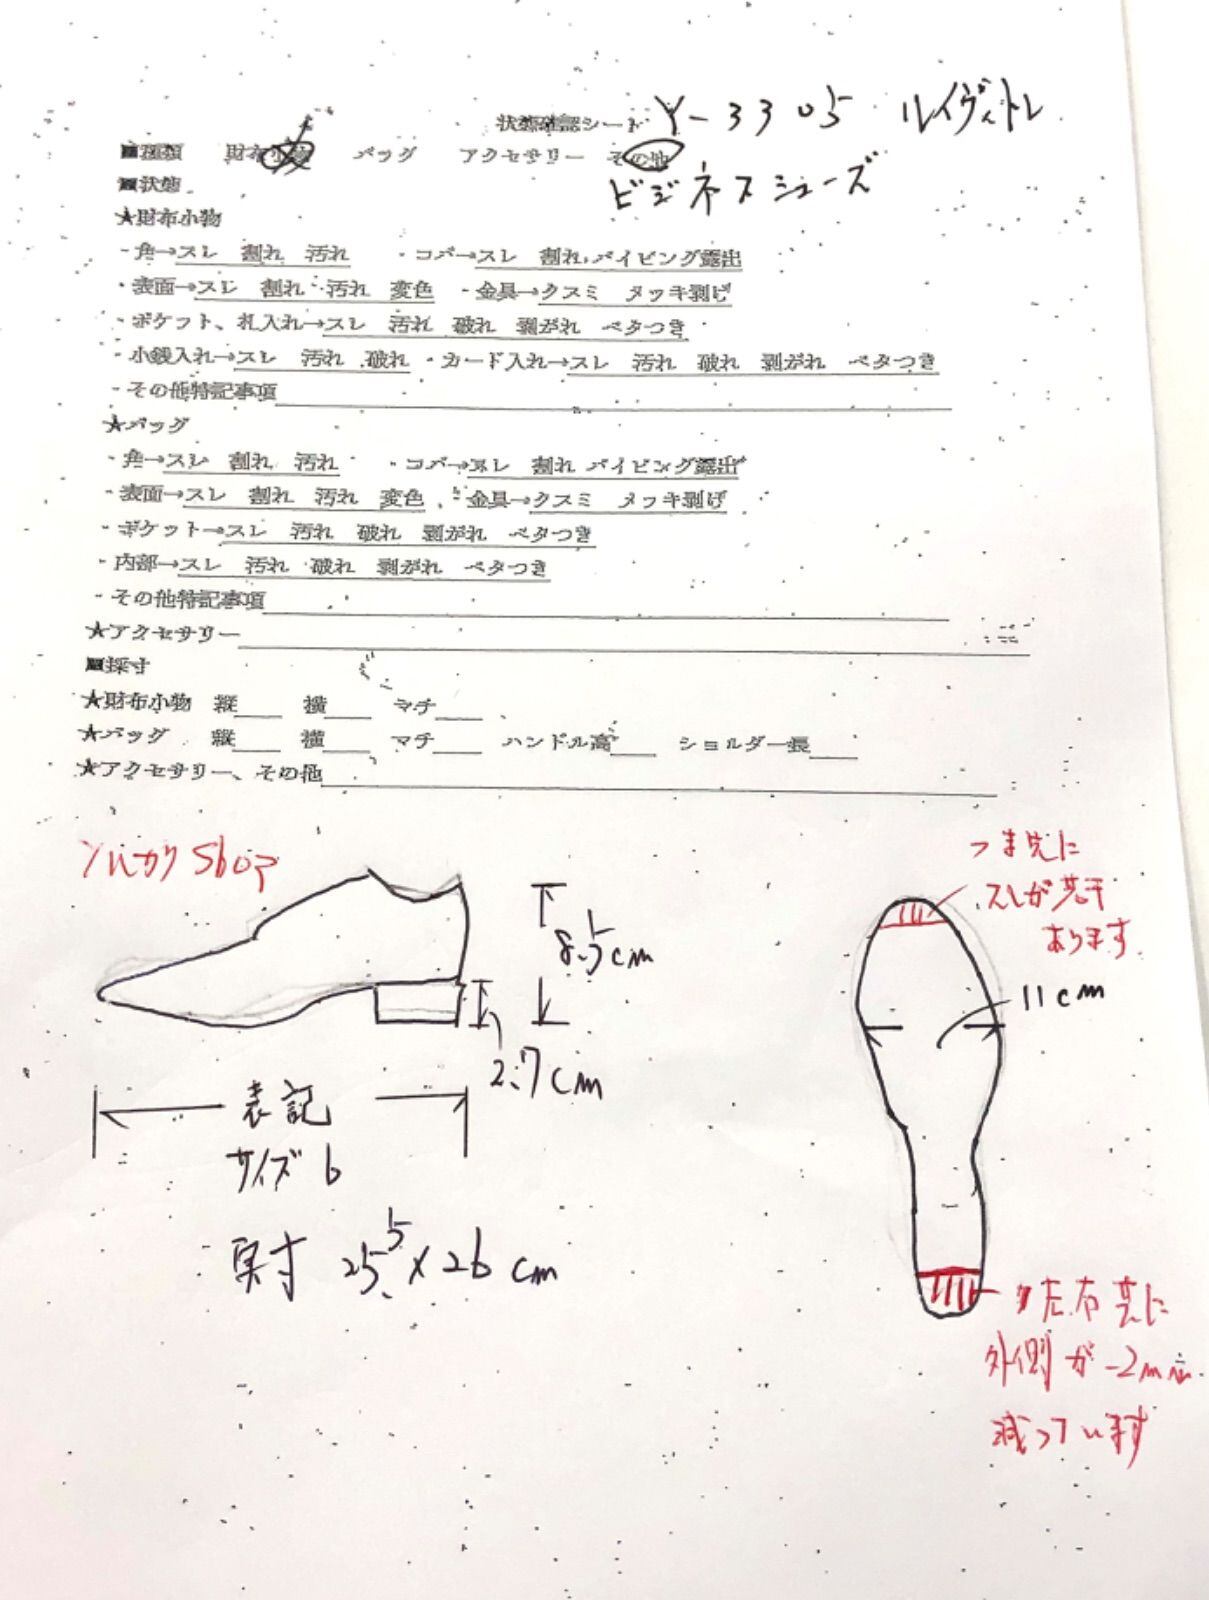 状態確認シート Y-3305 ルイヴィトン
■種類 財布小物 バッグ アクセサリー その他
ビジネスシューズ
■状態
★財布小物
・角→スレ 割れ 汚れ ・コバ→スレ 割れ パイピング露出
・表面→スレ 割れ 汚れ 変色 ・金具→クスミ メッキ剥げ
・ポケット、札入れ→スレ 汚れ 破れ 剥がれ ベタつき
・小銭入れ→スレ 汚れ 破れ ・カード入れ→スレ 汚れ 破れ 剥がれ ベタつき
・その他特記事項
★バッグ
・角→スレ 割れ 汚れ ・コバ→スレ 割れ パイピング露出
・表面→スレ 割れ 汚れ 変色 ・金具→クスミ メッキ剥げ
・ポケット→スレ 汚れ 破れ 剥がれ ベタつき
・内部→スレ 汚れ 破れ 剥がれ ベタつき
・その他特記事項
★アクセサリー
■採寸
★財布小物 縦 横 マチ
★バッグ 縦 横 マチ ハンドル高 ショルダー長
★アクセサリー、その他
Shop
8.5cm
2.7cm
表記
サイズ6
実寸 25.5×26cm
つま先に
スレが若干
あります
11cm
左右共に
外側が-2mm
減っています